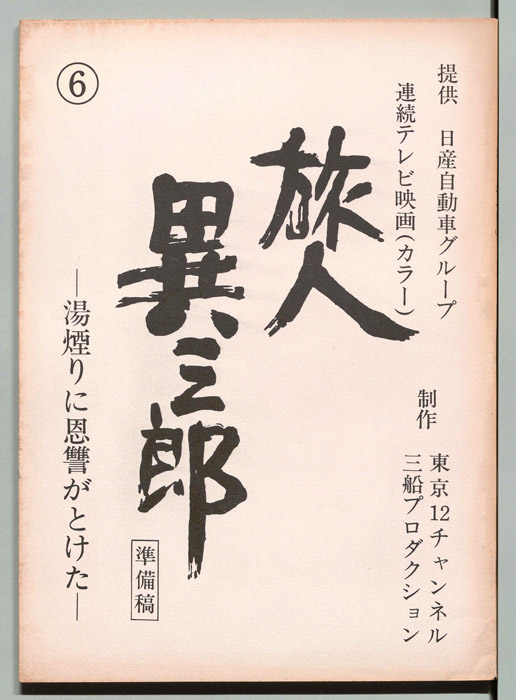 提供　日産自動車グループ
連続テレビ映画(カラー)
制作　東京12チャンネル
三船プロダクション
旅人
異三郎
準備稿
―湯煙りに恩讐がとけた―
⑥